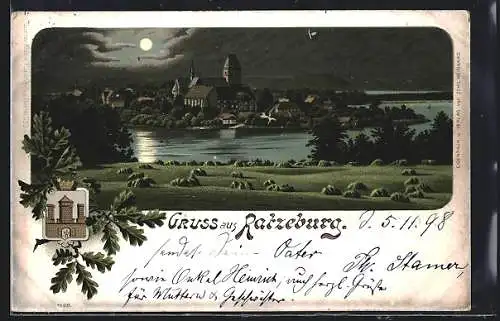 Gruss aus Ratzeburg.
d. 5.11.98
sendet Dein Vater
Th. Stamer,
sowie Onkel Heinrich, auch herzl. Grüße
für Muttern & Geschwister.